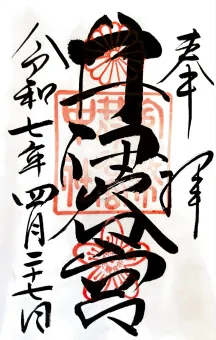 奉拝
井伊谷宮
令和七年四月二十七日